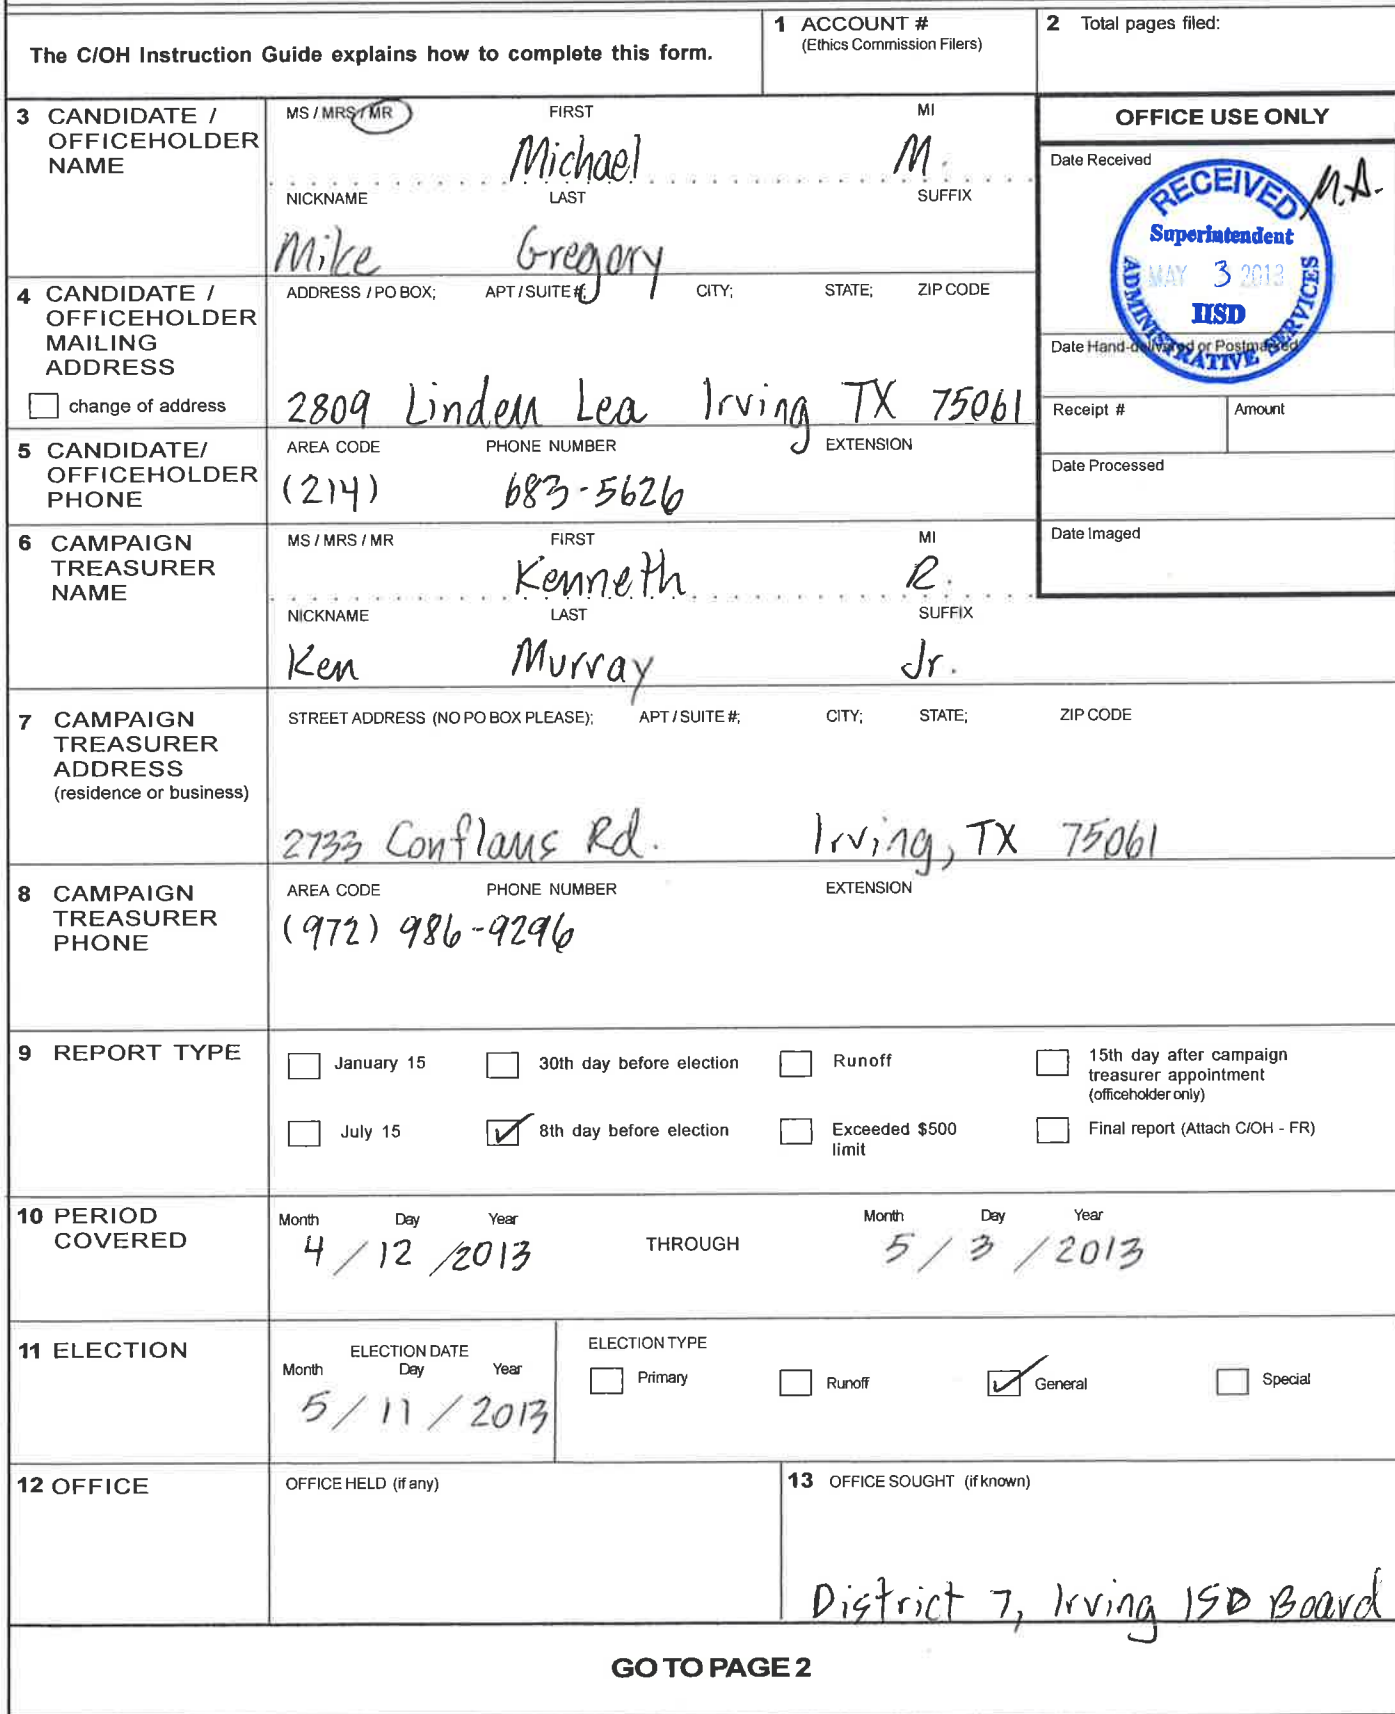 The C/OH Instruction Guide explains how to complete this form.
1 ACCOUNT #
(Ethics Commission Filers)
2 Total pages filed:
3 CANDIDATE /
OFFICEHOLDER
NAME
MS / MRS / MR FIRST MI
Michael M.
NICKNAME LAST SUFFIX
Mike Gregory
OFFICE USE ONLY
Date Received
M.A.
RECEIVED
Superintendent
MAY 3 2013
IISD
ADMINISTRATIVE SERVICES
Date Hand-delivered or Postmarked
Receipt # Amount
Date Processed
Date Imaged
4 CANDIDATE /
OFFICEHOLDER
MAILING
ADDRESS
change of address
ADDRESS / PO BOX; APT / SUITE #; CITY; STATE; ZIP CODE
2809 Linden Lea Irving TX 75061
5 CANDIDATE/
OFFICEHOLDER
PHONE
AREA CODE PHONE NUMBER EXTENSION
(214) 683-5626
6 CAMPAIGN
TREASURER
NAME
MS / MRS / MR FIRST MI
Kenneth R.
NICKNAME LAST SUFFIX
Ken Murray Jr.
7 CAMPAIGN
TREASURER
ADDRESS
(residence or business)
STREET ADDRESS (NO PO BOX PLEASE); APT / SUITE #; CITY; STATE; ZIP CODE
2733 Conflans Rd. Irving, TX 75061
8 CAMPAIGN
TREASURER
PHONE
AREA CODE PHONE NUMBER EXTENSION
(972) 986-9296
9 REPORT TYPE
January 15 30th day before election Runoff 15th day after campaign
treasurer appointment
(officeholder only)
July 15 8th day before election Exceeded $500
limit
Final report (Attach C/OH - FR)
10 PERIOD
COVERED
Month Day Year
4 / 12 / 2013
THROUGH
Month Day Year
5 / 3 / 2013
11 ELECTION
ELECTION DATE
Month Day Year
5 / 11 / 2013
ELECTION TYPE
Primary Runoff General Special
12 OFFICE
OFFICE HELD (if any)
13 OFFICE SOUGHT (if known)
District 7, Irving ISD Board
GO TO PAGE 2